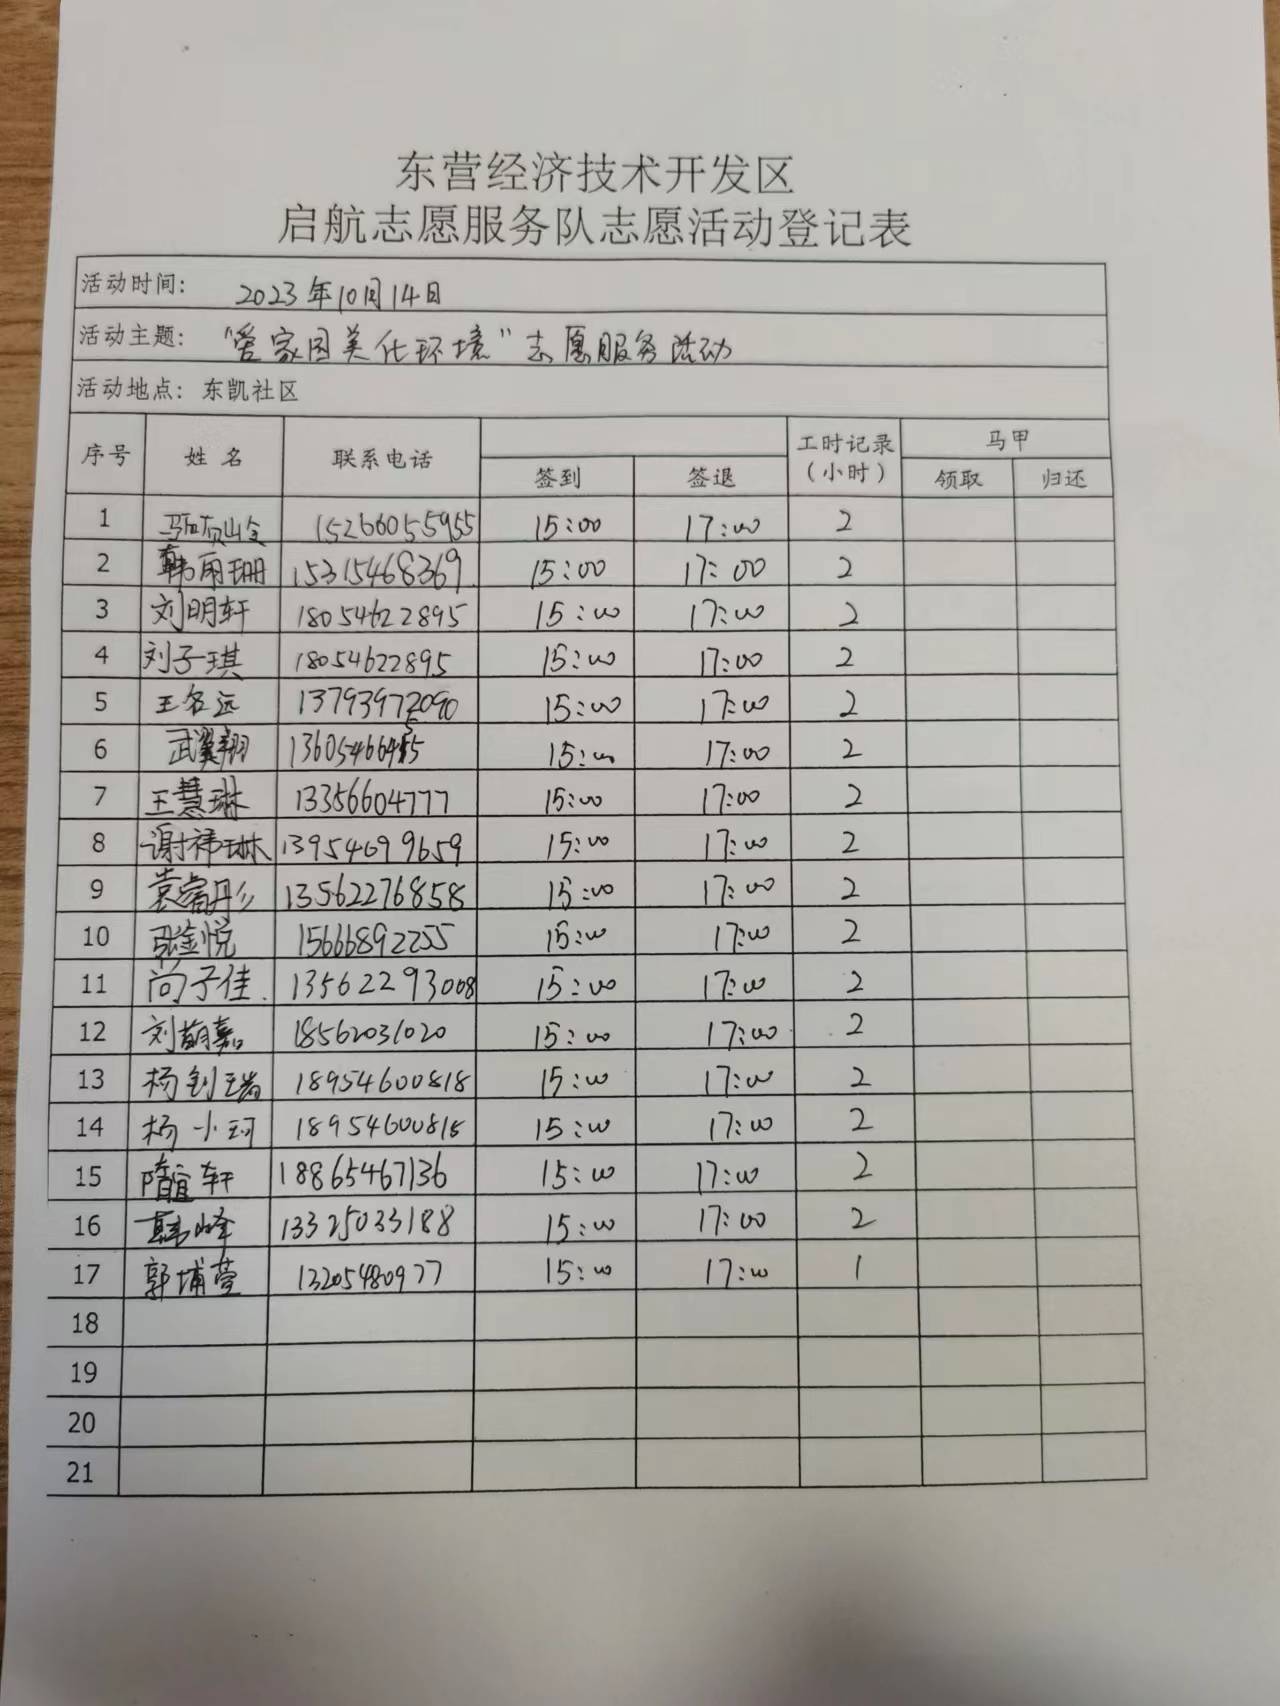 东营经济技术开发区
启航志愿服务队志愿活动登记表
活动时间： 2023年10月14日
活动主题： “爱家园美化环境”志愿服务活动
活动地点：东凯社区
序号 姓名 联系电话 签到 签退 工时记录（小时） 马甲 领取 归还
1 15266055955 15:00 17:00 2
2 韩雨珊 15315468369 15:00 17:00 2
3 刘明轩 18054622895 15:00 17:00 2
4 刘子琪 18054622895 15:00 17:00 2
5 王名远 13793972090 15:00 17:00 2
6 武翼翔 15:00 17:00 2
7 王慧琳 13356604777 15:00 17:00 2
8 谢祎琳 13954699659 15:00 17:00 2
9 袁 13562276858 15:00 17:00 2
10 张金悦 15666892255 15:00 17:00 2
11 尚子佳 13562293008 15:00 17:00 2
12 刘 嘉 18562031020 15:00 17:00 2
13 杨钊瑞 18954600818 15:00 17:00 2
14 杨小珂 18954600818 15:00 17:00 2
15 隋谊轩 18865467136 15:00 17:00 2
16 韩峰 13325033188 15:00 17:00 2
17 郭埔萱 13205480977 15:00 17:00 1
18
19
20
21